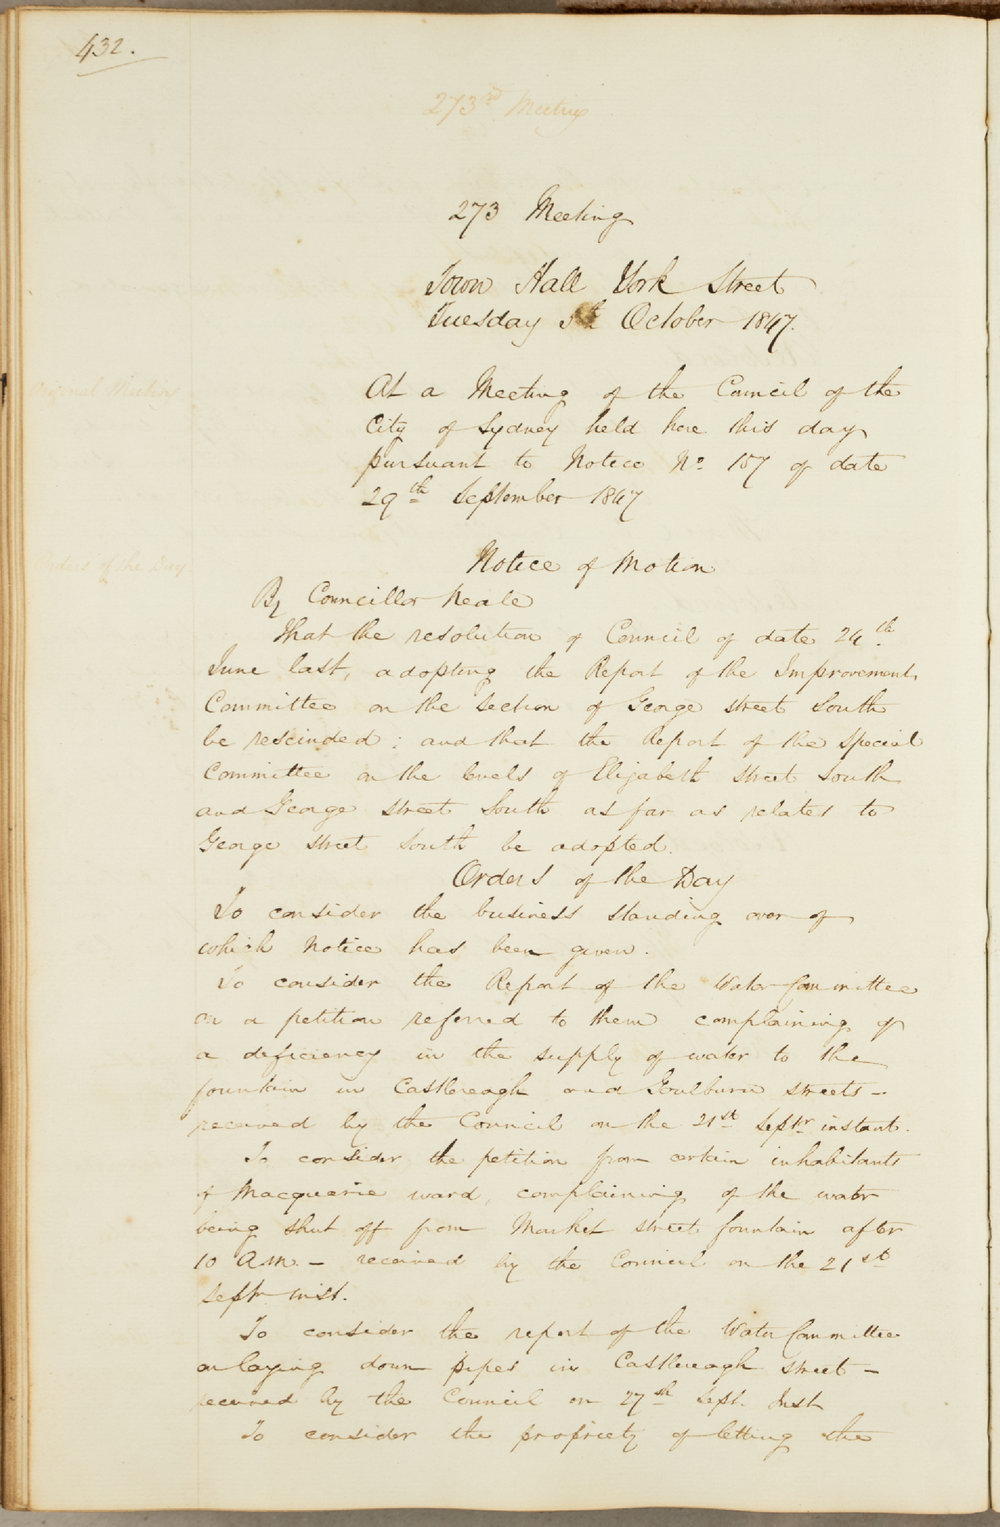 432.
273rd Meeting
273 Meeting
Town Hall York Street
Tuesday 5th October 1847.
Original Meeting
At a Meeting of the Council of the
City of Sydney held here this day
pursuant to Notice No. 157 of date
29th September 1847
Orders of the Day
Notice of Motion
By Councillor Neale
That the resolution of Council of date 24th
June last, adopting the Report of the Improvement
Committee on the section of George street South
be rescinded: and that the Report of the special
Committee on the levels of Elizabeth street South
and George street South as far as relates to
George street South be adopted.
Orders of the Day
To consider the business standing over of
which Notice has been given.
To consider the Report of the Water Committee
on a petition referred to them complaining of
a deficiency in the supply of water to the
fountain in Castlereagh and Goulburn streets -
received by the Council on the 21st Septr instant.
To consider the petition from certain inhabitants
of Macquarie ward, complaining of the water
being shut off from Market street fountain after
10 A.M. - received by the Council on the 21st
Septr inst.
To consider the report of the Water Committee
on laying down pipes in Castlereagh street -
received by the Council on 27th Sept. Inst
To consider the propriety of letting the